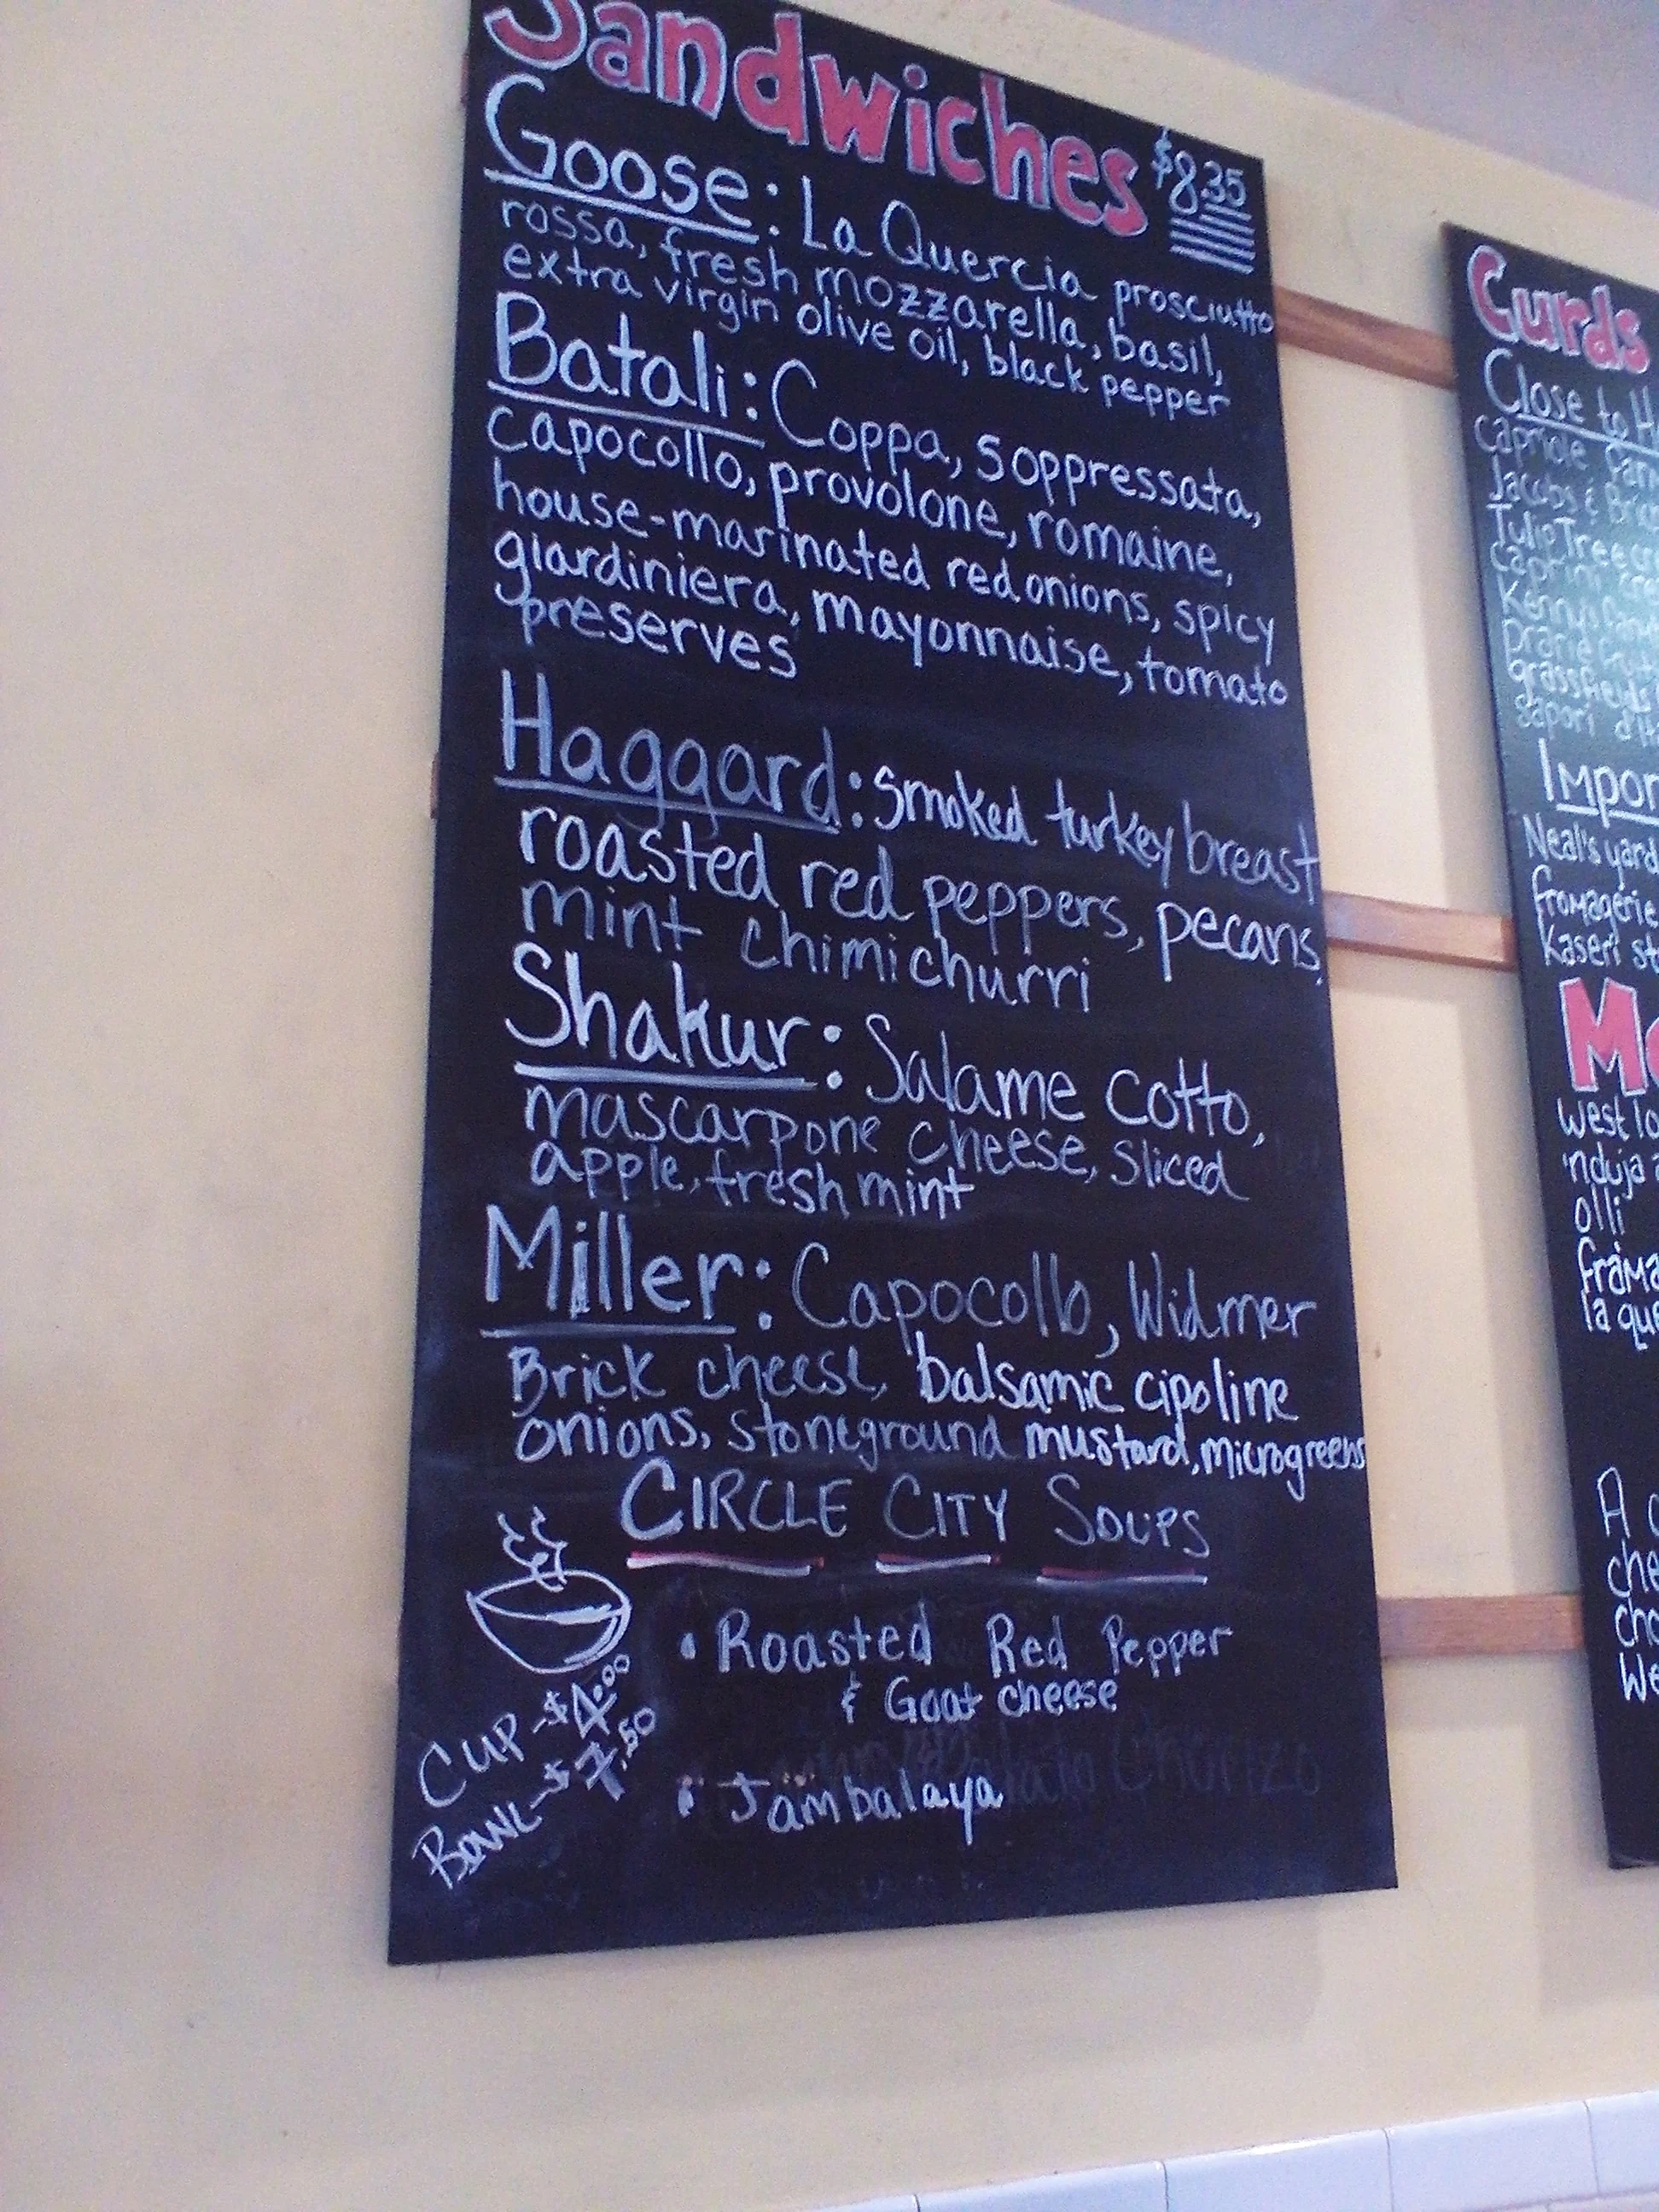 Sandwiches $8.35
Goose: La Quercia prosciutto
rossa, fresh mozzarella, basil,
extra virgin olive oil, black pepper
Batali: Coppa, Soppressata,
capocollo, provolone, romaine,
house-marinated red onions, spicy
giardiniera, mayonnaise, tomato
preserves
Haggard: smoked turkey breast
roasted red peppers, pecans,
mint chimichurri
Shakur: Salame Cotto,
mascarpone cheese, sliced
apple, fresh mint
Miller: Capocollo, Widmer
Brick cheese, balsamic cipoline
onions, stoneground mustard, microgreens
CIRCLE CITY SOUPS
• Roasted Red Pepper
& Goat cheese
• Jambalaya
CUP-$4.00
BOWL-$7.50
Curds
Close to H
Capriole
Jacobs &
Tulip Tree
Kenny's
Prairie
grassfields
sapori
Impor
Neal's yard
fromagerie
Kaseri st
M
West lo
'nduja a
olli
frama
la que
A c
che
cho
We